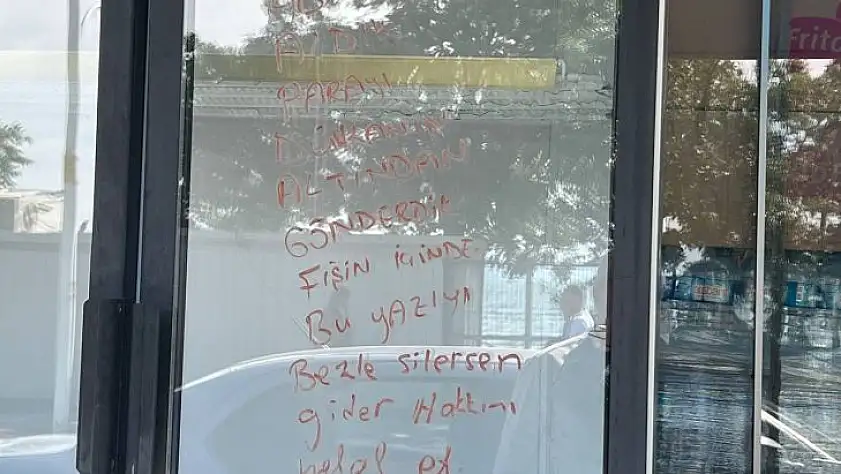 ALDIK
PARAYI
DÜKKANIN
ALTINDAN
GÖNDERDİK
FİŞİN İÇİNDE.
BU YAZIYI
Bezle silersen
gider Hakkını
helal et
Frito